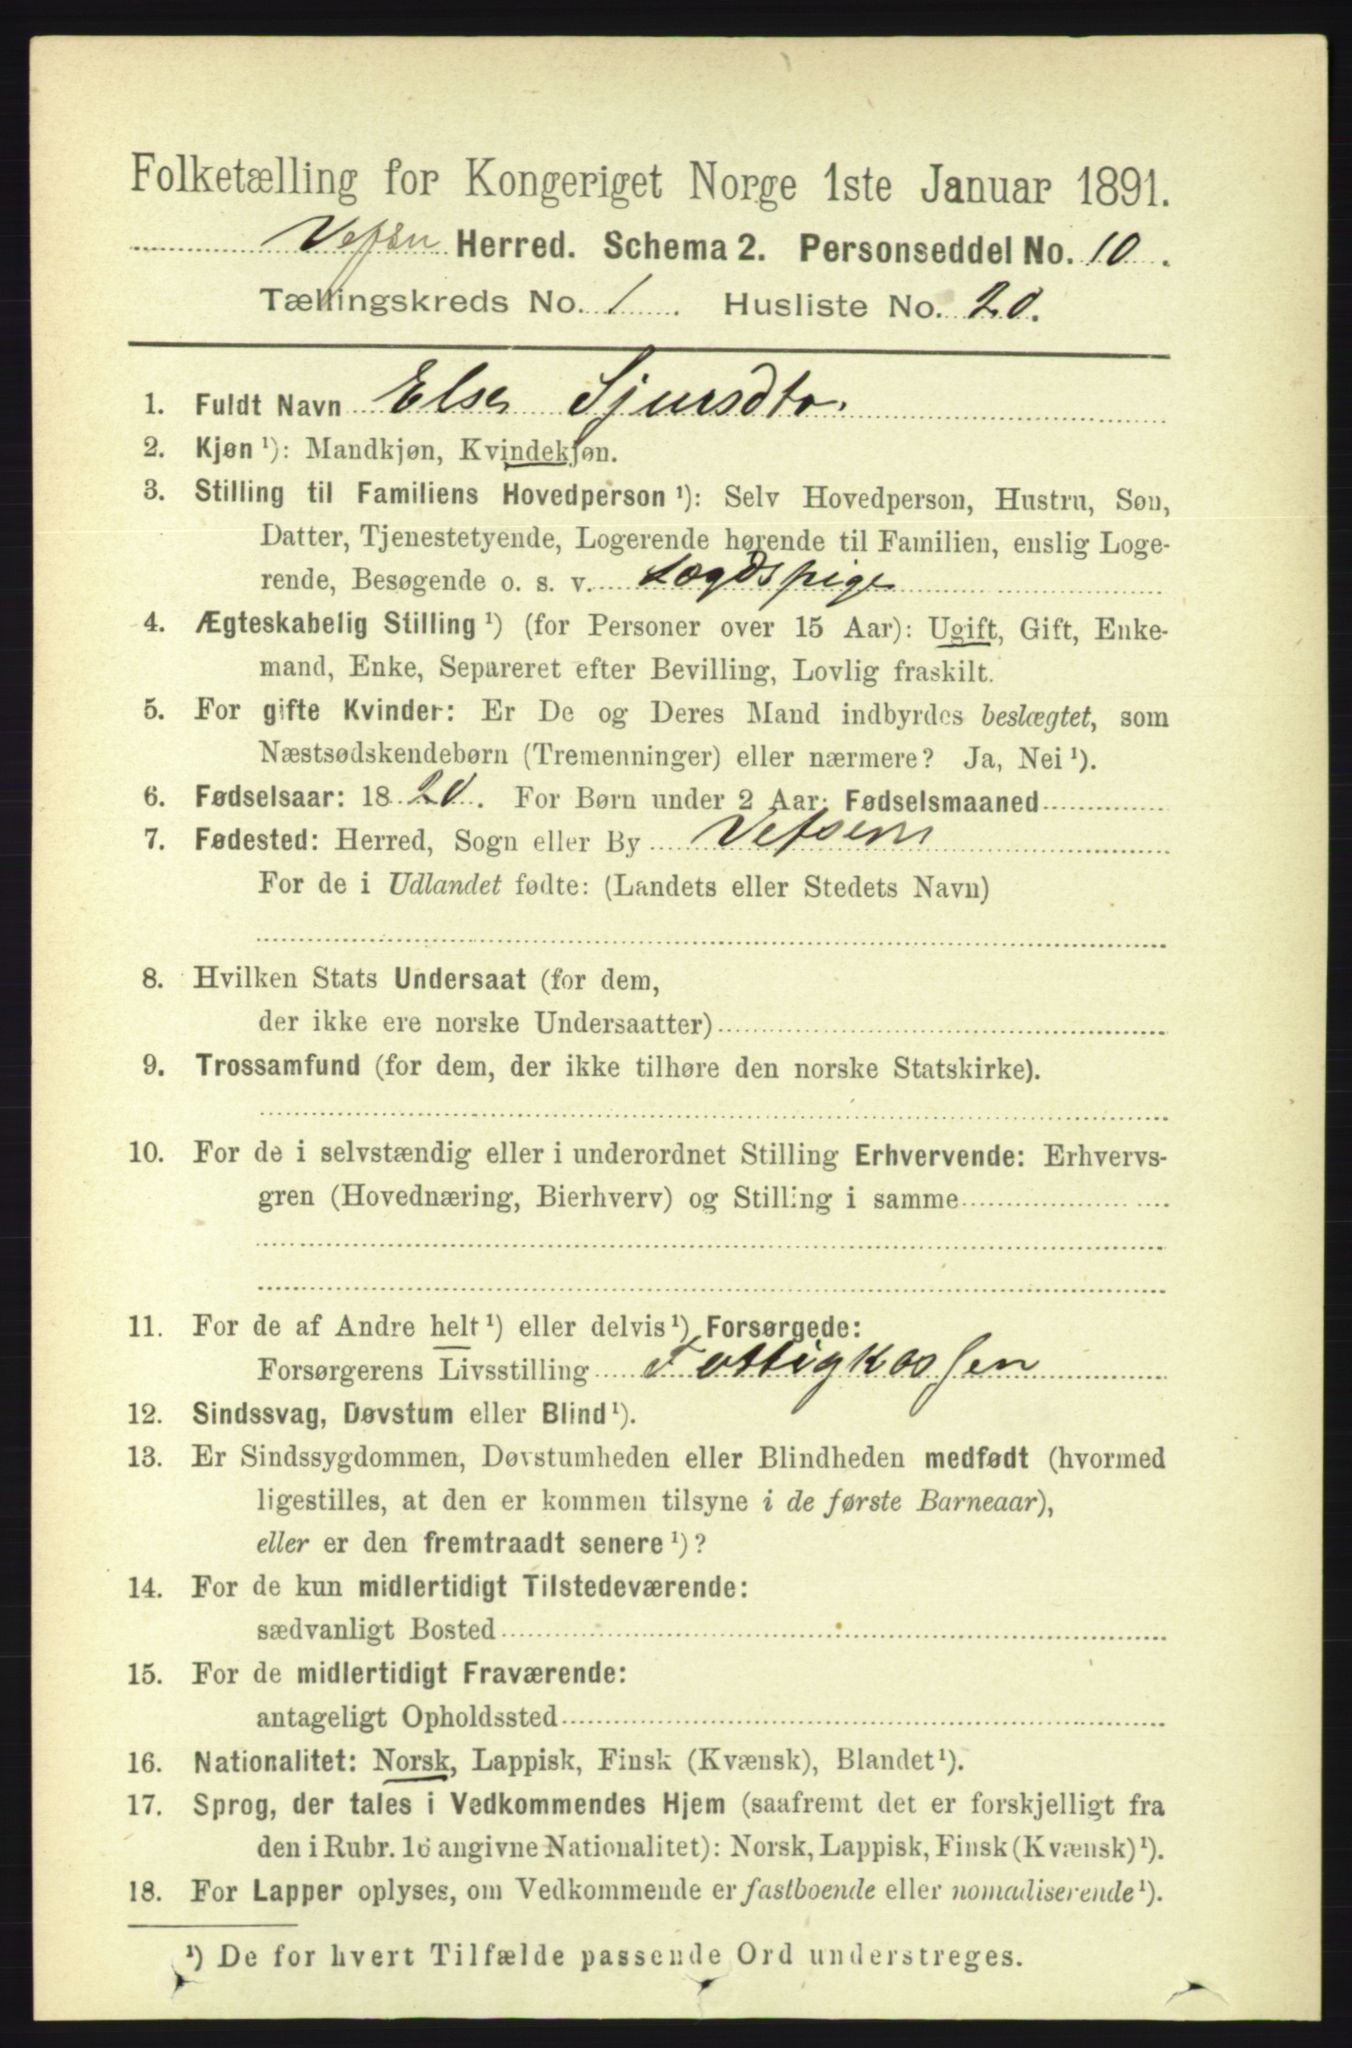 Folketælling for Kongeriget Norge 1ste Januar 1891.
Vefsn Herred. Schema 2. Personseddel No. 10.
Tællingskreds No. 1. Husliste No. 20.
1. Fuldt Navn Else Sjursdtr.
2. Kjøn ¹): Mandkjøn, Kvindekjøn.
3. Stilling til Familiens Hovedperson ¹): Selv Hovedperson, Hustru, Søn,
Datter, Tjenestetyende, Logerende hørende til Familien, enslig Loge-
rende, Besøgende o. s. v. Lægdspige
4. Ægteskabelig Stilling ¹) (for Personer over 15 Aar): Ugift, Gift, Enke-
mand, Enke, Separeret efter Bevilling, Lovlig fraskilt.
5. For gifte Kvinder: Er De og Deres Mand indbyrdes beslægtet, som
Næstsødskendebørn (Tremenninger) eller nærmere? Ja, Nei ¹).
6. Fødselsaar: 1820. For Børn under 2 Aar: Fødselsmaaned
7. Fødested: Herred, Sogn eller By Vefsen
For de i Udlandet fødte: (Landets eller Stedets Navn)
8. Hvilken Stats Undersaat (for dem,
der ikke ere norske Undersaatter)
9. Trossamfund (for dem, der ikke tilhøre den norske Statskirke).
10. For de i selvstændig eller i underordnet Stilling Erhvervende: Erhvervs-
gren (Hovednæring, Bierhverv) og Stilling i samme
11. For de af Andre helt ¹) eller delvis ¹) Forsørgede:
Forsørgerens Livsstilling Fattigkassen
12. Sindssvag, Døvstum eller Blind ¹).
13. Er Sindssygdommen, Døvstumheden eller Blindheden medfødt (hvormed
ligestilles, at den er kommen tilsyne i de første Barneaar),
eller er den fremtraadt senere ¹)?
14. For de kun midlertidigt Tilstedeværende:
sædvanligt Bosted
15. For de midlertidigt Fraværende:
antageligt Opholdssted
16. Nationalitet: Norsk, Lappisk, Finsk (Kvænsk), Blandet ¹).
17. Sprog, der tales i Vedkommendes Hjem (saafremt det er forskjelligt fra
den i Rubr. 16 angivne Nationalitet): Norsk, Lappisk, Finsk (Kvænsk) ¹).
18. For Lapper oplyses, om Vedkommende er fastboende eller nomadiserende ¹).
¹) De for hvert Tilfælde passende Ord understreges.